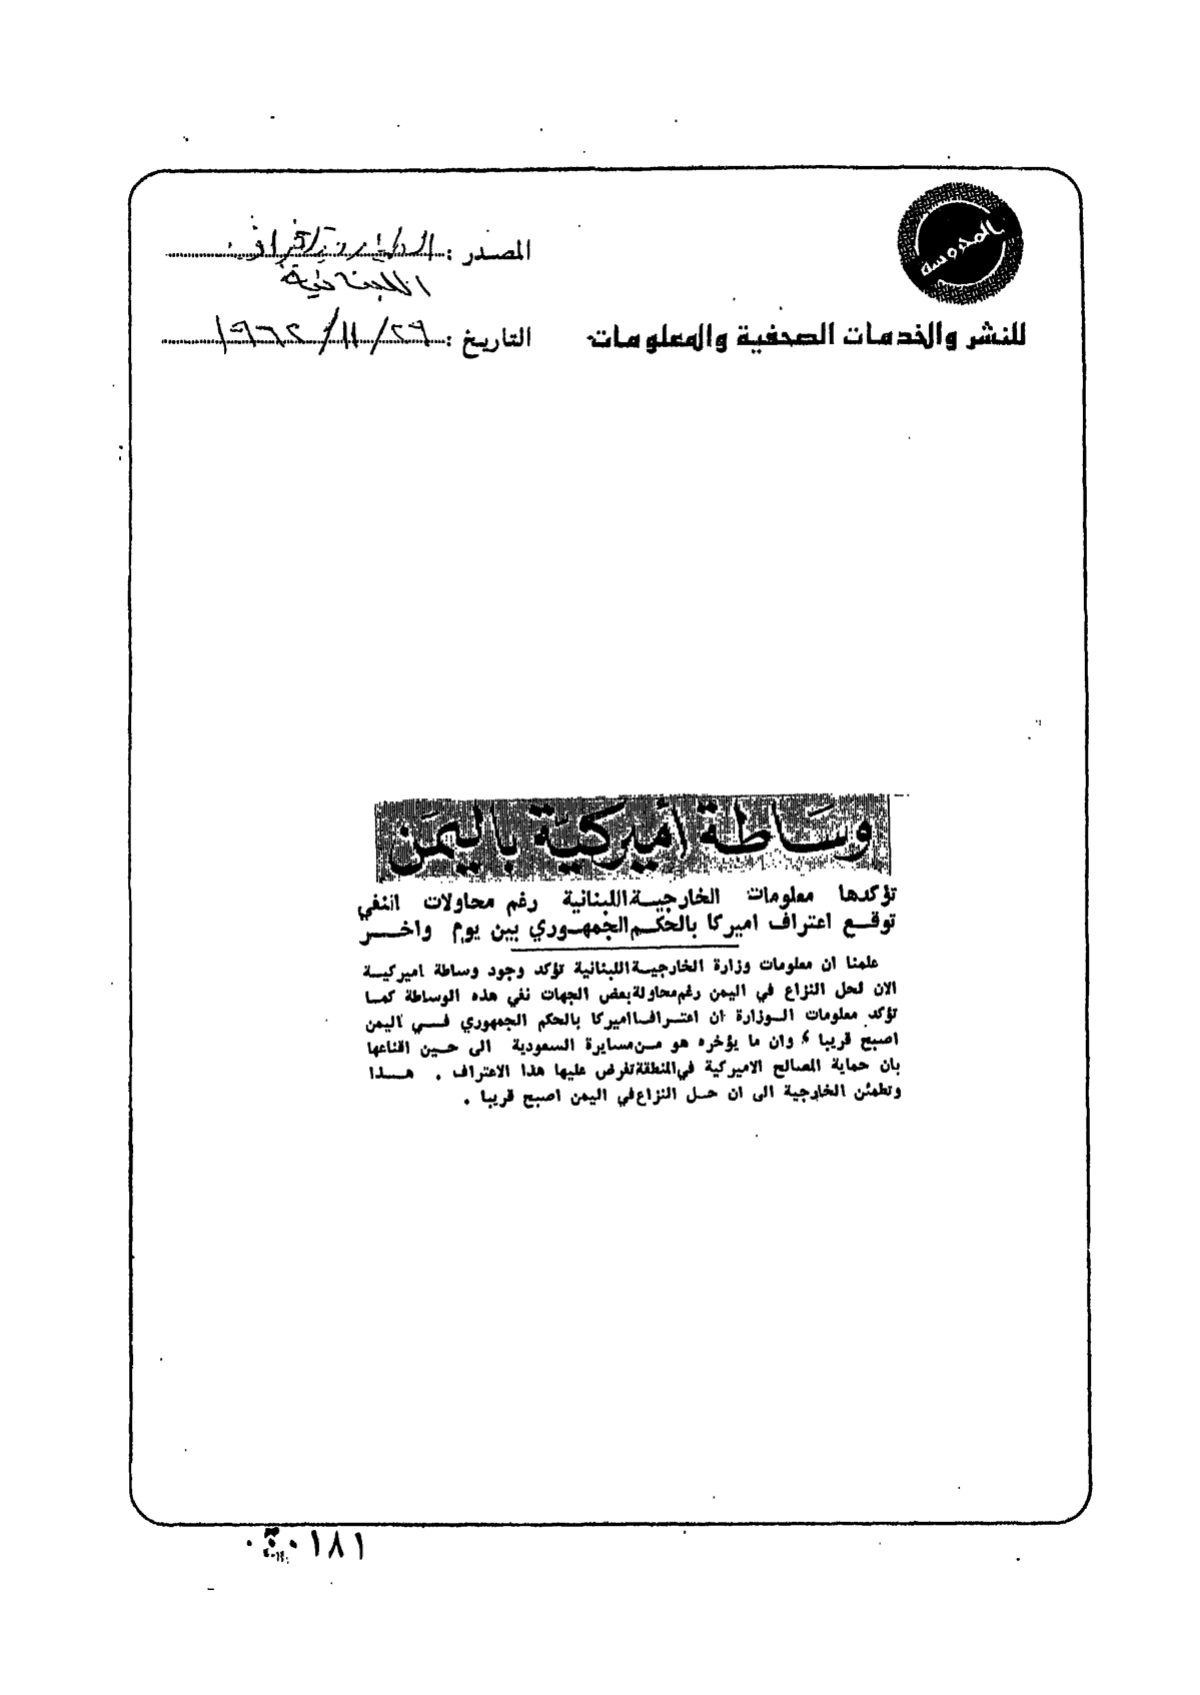 المحروسة
للنشر والخدمات الصحفية والمعلومات
المصدر :
اللبنانية
التاريخ : ٢٩/ ١١/ ١٩٦٢
وساطة أميركية باليمن
تؤكدها معلومات الخارجية اللبنانية رغم محاولات النفي
توقع اعتراف اميركا بالحكم الجمهوري بين يوم واخر
علمنا ان معلومات وزارة الخارجية اللبنانية تؤكد وجود وساطة اميركية
الان لحل النزاع في اليمن رغم محاولة بعض الجهات نفي هذه الوساطة كما
تؤكد معلومات الوزارة ان اعتراف اميركا بالحكم الجمهوري في اليمن
اصبح قريبا ، وان ما يؤخره هو من مسايرة السعودية الى حين اقناعها
بان حماية المصالح الاميركية في المنطقة تفرض عليها هذا الاعتراف . هذا
وتطمئن الخارجية الى ان حل النزاع في اليمن اصبح قريبا .